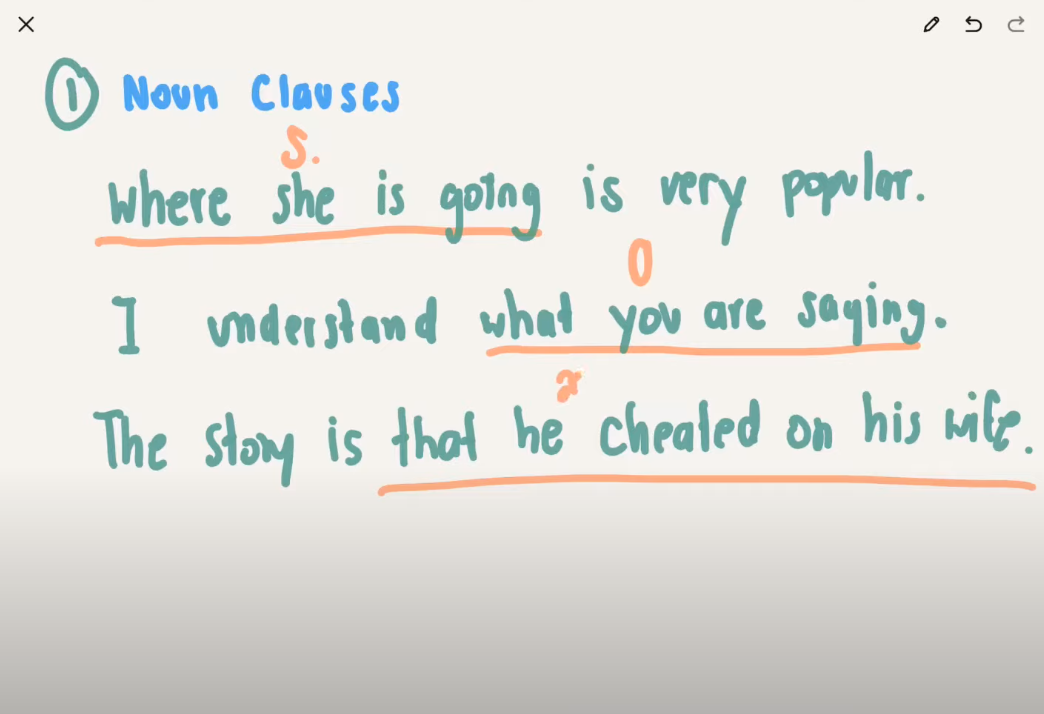 ① Noun Clauses
S.
Where she is going is very popular.
O
I understand what you are saying.
The story is that he cheated on his wife.